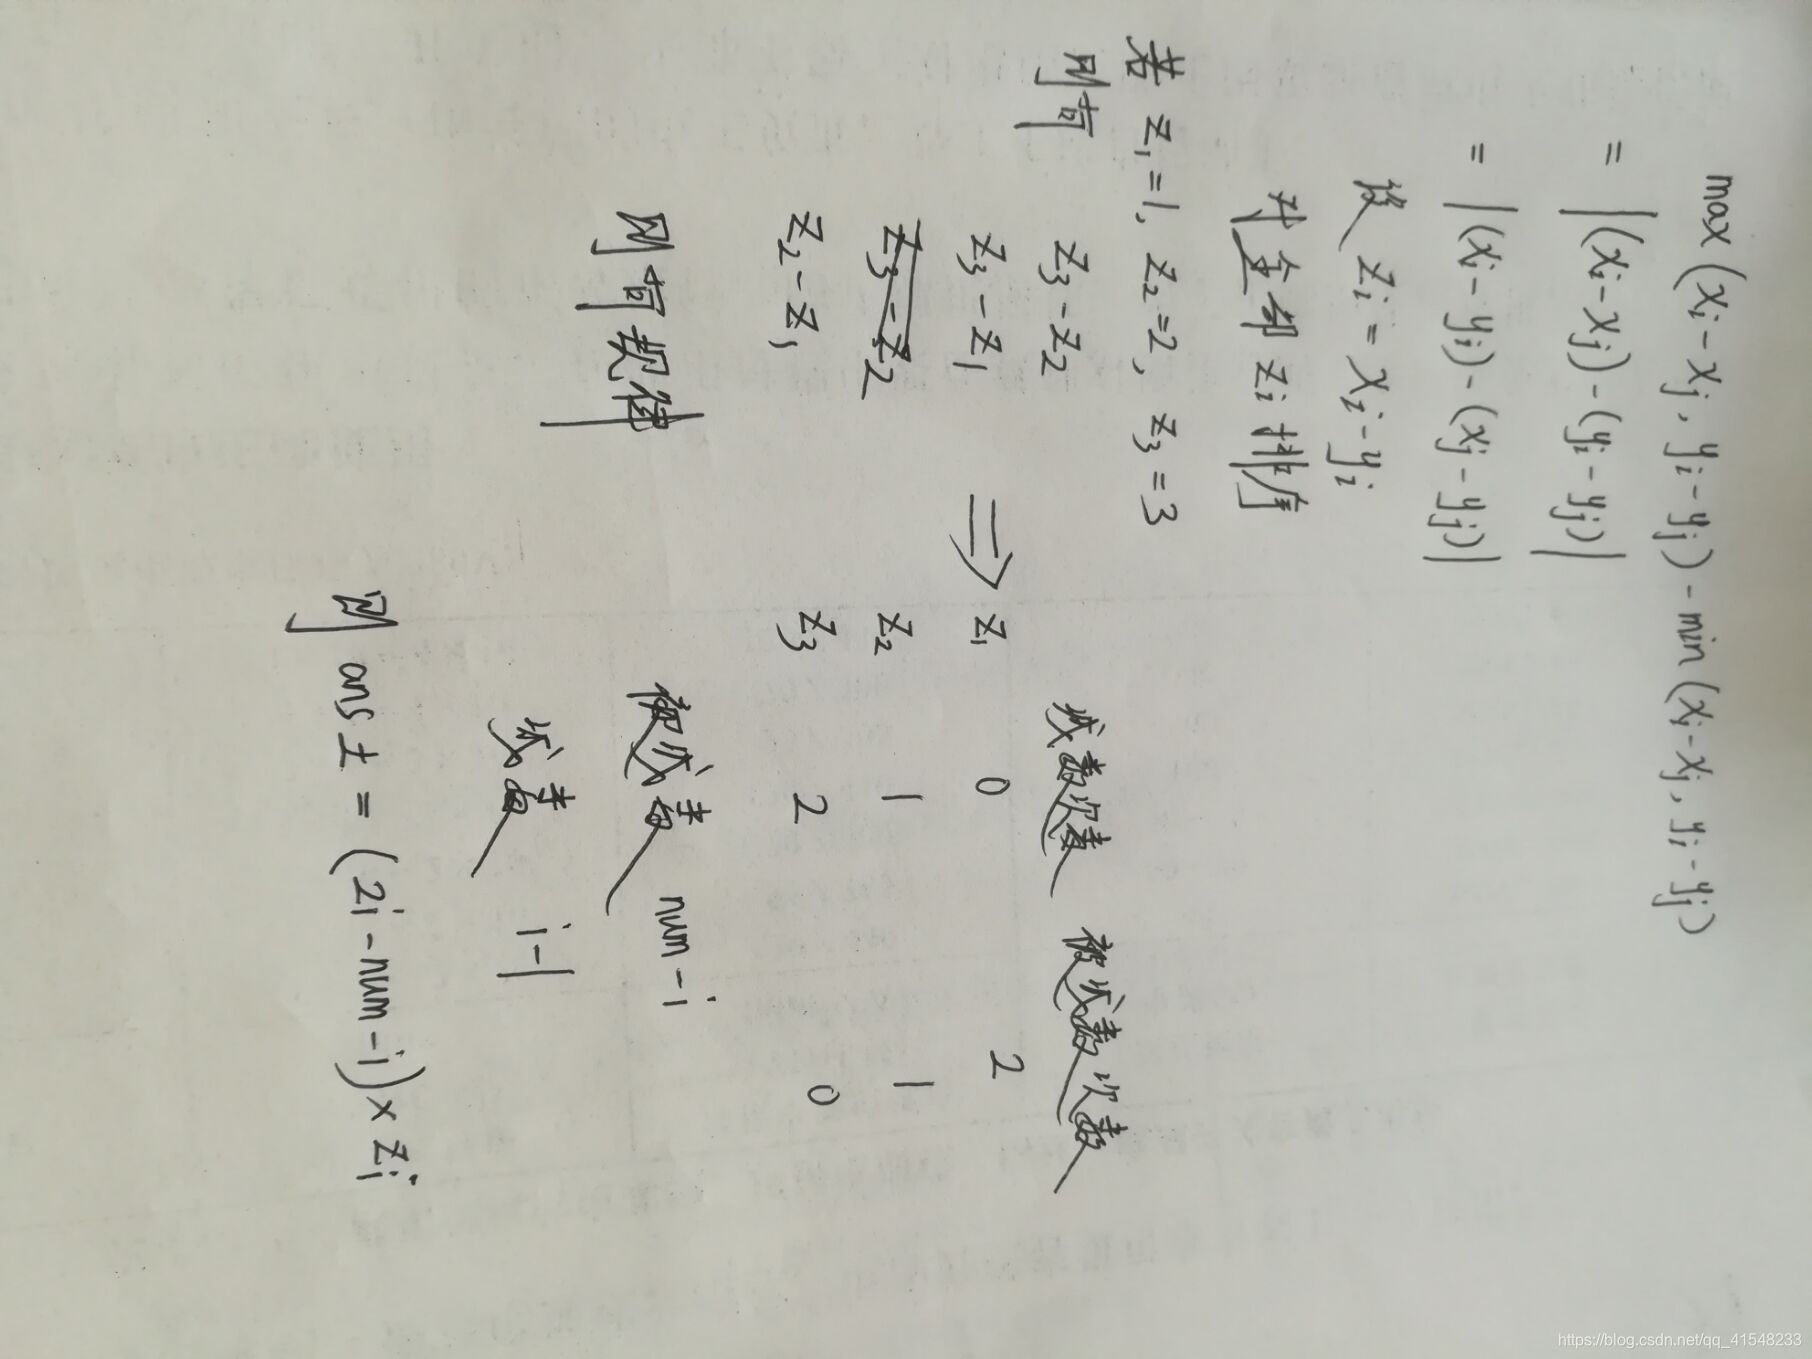 max(xi-xj, yi-yj)-min(xi-xj, yi-yj)
= |(xi-xj)-(yi-yj)|
= |(xi-yi)-(xj-yj)|
设 zi = xi-yi
对全部 zi 排序
若 z1=1, z2=2, z3=3
则有
z3-z2
z3-z1
z3-z2
z2-z1
⇒
减数次数 被减数次数
z1 0 2
z2 1 1
z3 2 0
则有规律
被减数 num-i
减数 i-1
则 ans ± = (2i-num-i)×zi
https://blog.csdn.net/qq_41548233